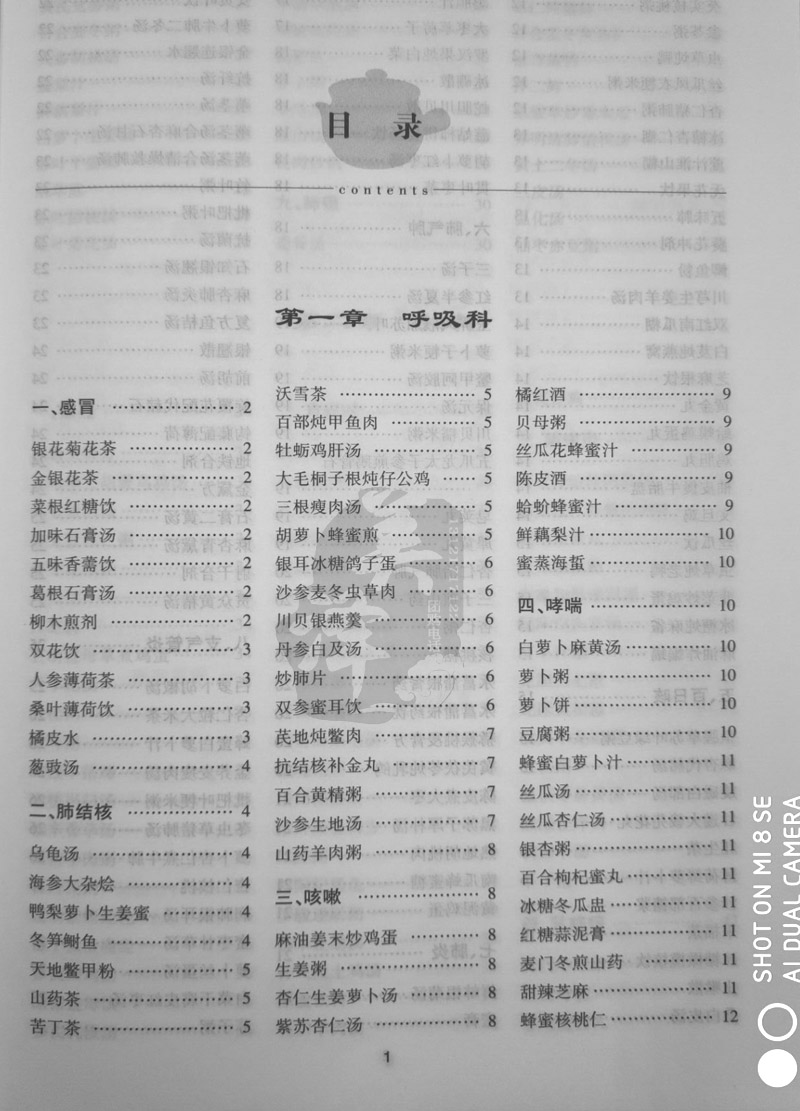 目 录
contents
第一章 呼吸科
一、感冒 ………… 2
银花菊花茶 ………… 2
金银花茶 ………… 2
菜根红糖饮 ………… 2
加味石膏汤 ………… 2
五味香薷饮 ………… 2
葛根石膏汤 ………… 2
柳木煎剂 ………… 2
双花饮 ………… 3
人参薄荷茶 ………… 3
桑叶薄荷饮 ………… 3
橘皮水 ………… 3
葱豉汤 ………… 4
二、肺结核 ………… 4
乌龟汤 ………… 4
海参大杂烩 ………… 4
鸭梨萝卜生姜蜜 ………… 4
冬笋鲥鱼 ………… 4
天地鳖甲粉 ………… 5
山药茶 ………… 5
苦丁茶 ………… 5
沃雪茶 ………… 5
百部炖甲鱼肉 ………… 5
牡蛎鸡肝汤 ………… 5
大毛桐子根炖仔公鸡 …… 5
三根瘦肉汤 ………… 5
胡萝卜蜂蜜煎 ………… 5
银耳冰糖鸽子蛋 ………… 6
沙参麦冬虫草肉 ………… 6
川贝银燕羹 ………… 6
丹参白及汤 ………… 6
炒肺片 ………… 6
双参蜜耳饮 ………… 6
芪地炖鳖肉 ………… 7
抗结核补金丸 ………… 7
百合黄精粥 ………… 7
沙参生地汤 ………… 7
山药羊肉粥 ………… 8
三、咳嗽 ………… 8
麻油姜末炒鸡蛋 ………… 8
生姜粥 ………… 8
杏仁生姜萝卜汤 ………… 8
紫苏杏仁汤 ………… 8
橘红酒 ………… 9
贝母粥 ………… 9
丝瓜花蜂蜜汁 ………… 9
陈皮酒 ………… 9
蛤蚧蜂蜜汁 ………… 9
鲜藕梨汁 ………… 10
蜜蒸海蜇 ………… 10
四、哮喘 ………… 10
白萝卜麻黄汤 ………… 10
萝卜粥 ………… 10
萝卜饼 ………… 10
豆腐粥 ………… 10
蜂蜜白萝卜汁 ………… 11
丝瓜汤 ………… 11
丝瓜杏仁汤 ………… 11
银杏粥 ………… 11
百合枸杞蜜丸 ………… 11
冰糖冬瓜盅 ………… 11
红糖蒜泥膏 ………… 11
麦门冬煎山药 ………… 11
甜辣芝麻 ………… 11
蜂蜜核桃仁 ………… 12
1
SHOT ON MI 8 SE
AI DUAL CAMERA